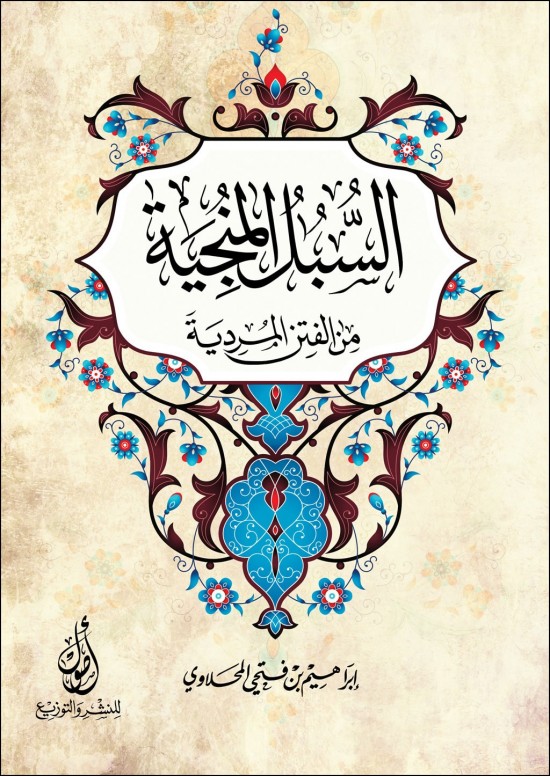 السُّبُلُ المُنْجِيَة
مِنَ الفِتَنِ المُردِيَةَ
إبراهيم بن فتحي المحلاوي
أصول
للنشر والتوزيع